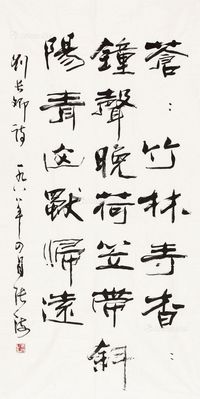 蒼〻竹林寺杳〻
鐘聲晚荷笠帶斜
陽青山獨歸遠
刘長卿詩 一九八八年四月張海